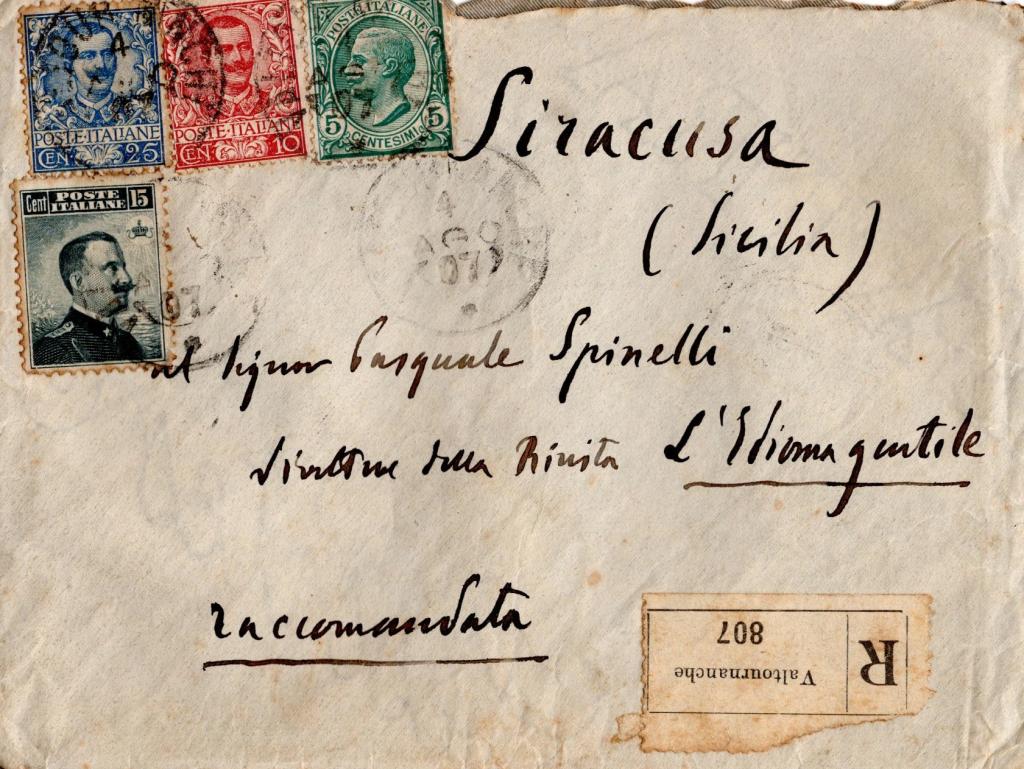 POSTE·ITALIANE
CEN. 25
POSTE·ITALIANE
CEN. 10
POSTE ITALIANE
5 CENTESIMI 5
Cent POSTE ITALIANE 15
4
AGO
07
Siracusa
(Sicilia)
al Signor Pasquale Spinelli
direttore della Rivista L'Idioma gentile
raccomandata
R
Valtournanche
807